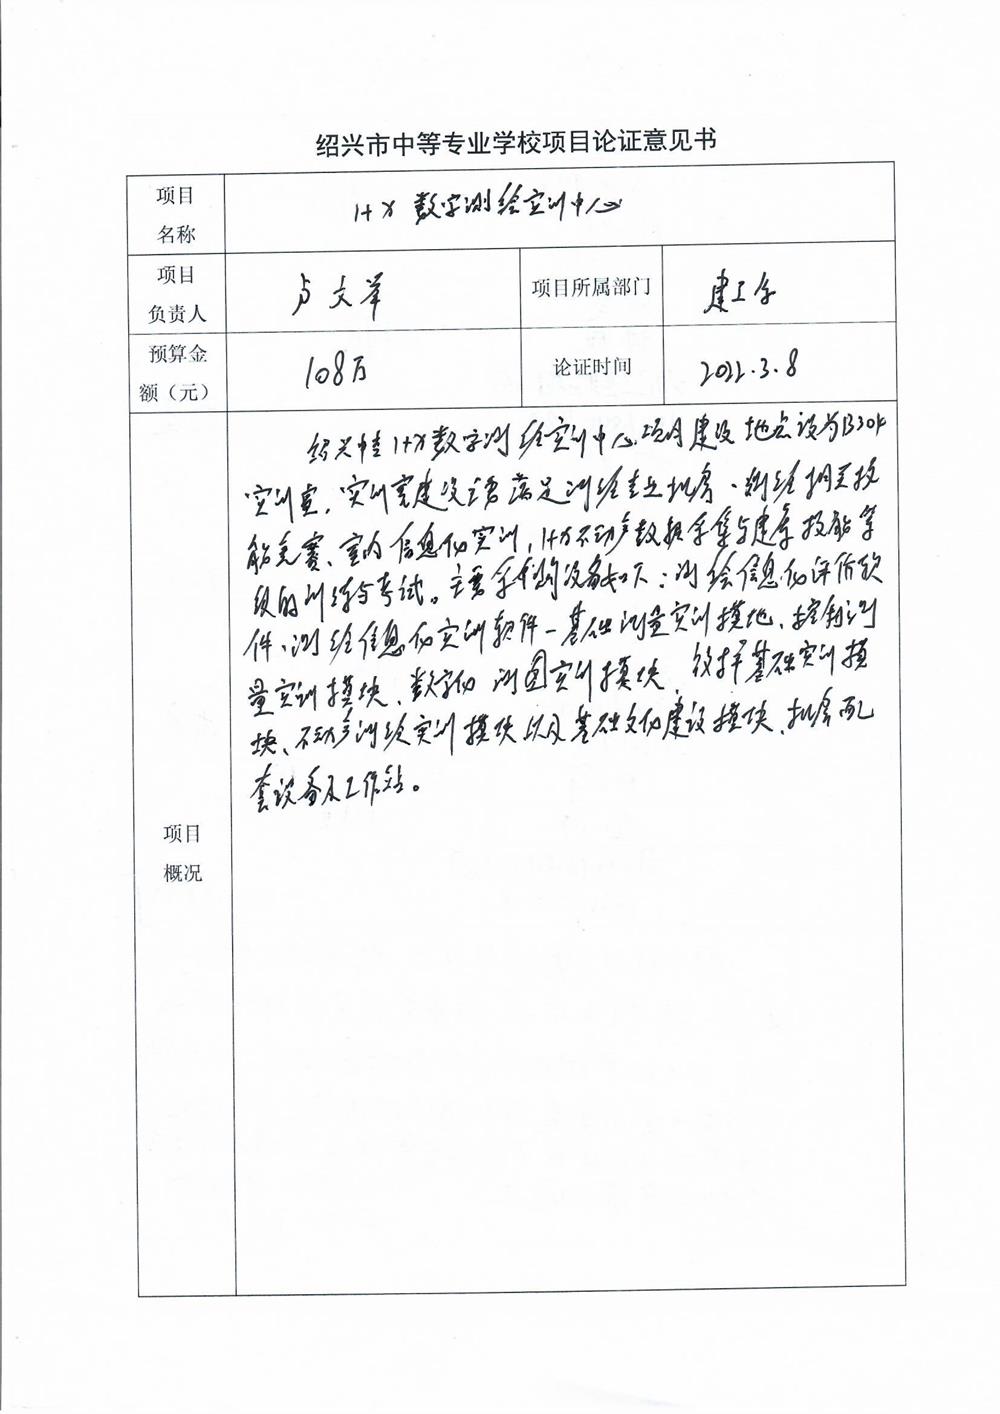 绍兴市中等专业学校项目论证意见书
项目
名称
1+X 数字测绘实训中心
项目
负责人
卢文举
项目所属部门
建工系
预算金
额（元）
108万
论证时间
2022.3.8
项目
概况
绍兴中专1+X数字测绘实训中心项目建设地点设为B304
实训室，实训室建设主要满足测绘专业教学、测绘相关技
能竞赛、室内信息化实训，1+X不动产数据采集与建库技能等
级的训练与考试。主要采购设备如下：测绘信息化评价软
件、测绘信息化实训软件－基础测量实训模地、控制测
量实训模块、数字化测图实训模块、放样基础实训模
块、不动产测绘实训模块以及基础文化建设模块、教学配
套设备及工作站。